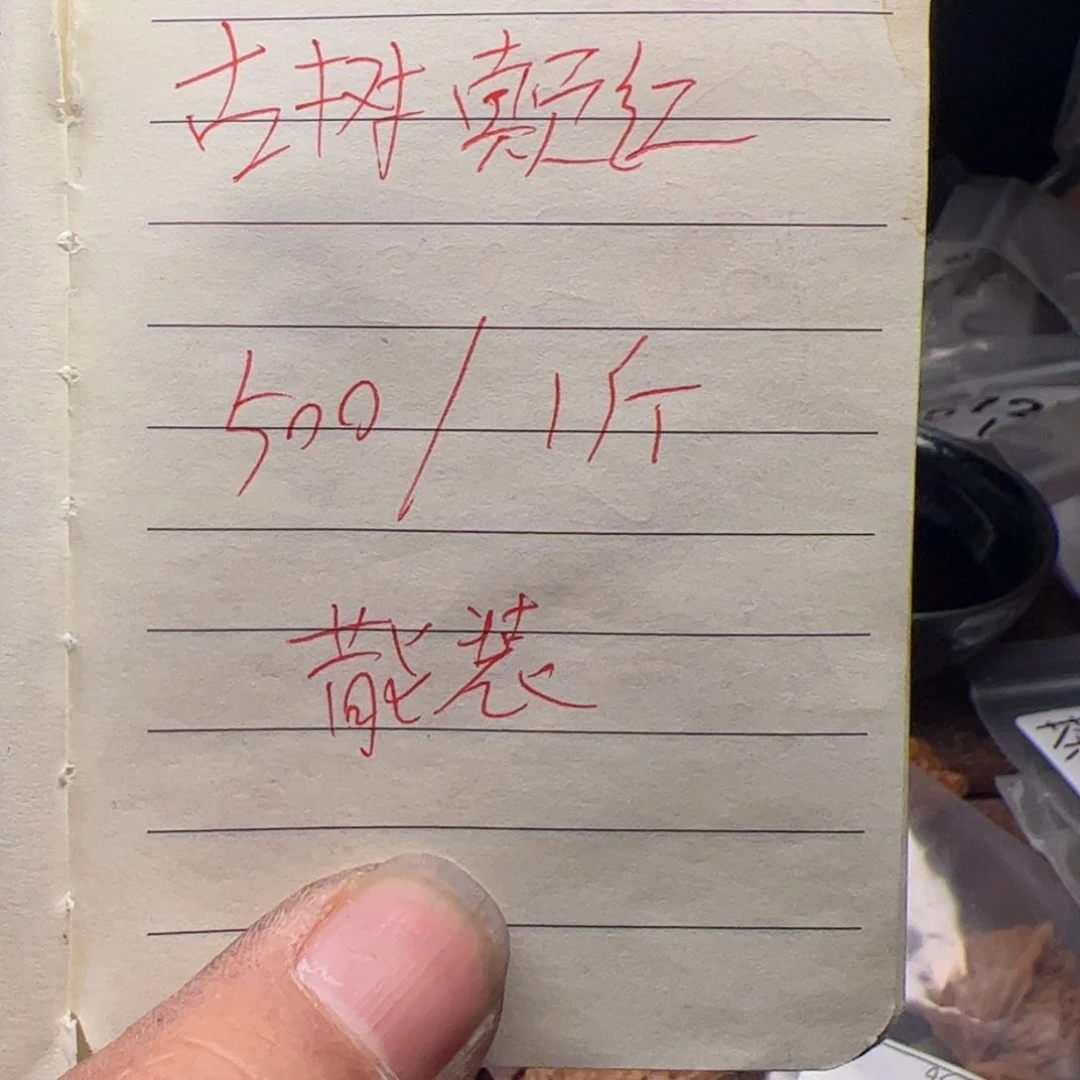 古树滇红
500/1斤
散装